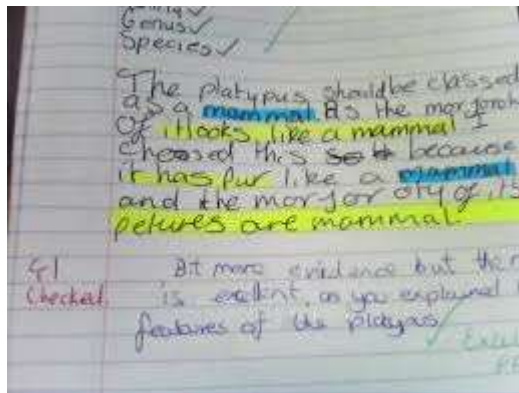 Genus✓
Species✓
The platypus should be classed
as a mammal. As the morjoroty
Of it looks like a mammal I
choosed this because
it has fur like a mammal
and the morjoroty of its
petures are mammal.
Bit more evidence but
Checked. is excellent, as you explained
features of the platypus